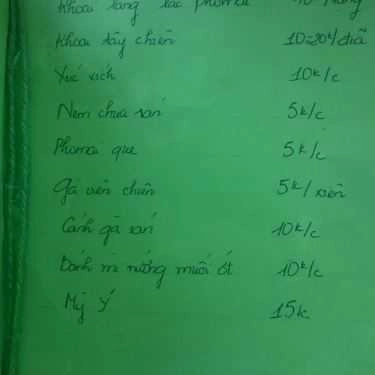 Khoai lang lắc phomai
Khoai tây chiên 10-20k/đĩa
Xúc xích 10k/c
Nem chua rán 5k/c
Phomai que 5k/c
Gà viên chiên 5k/xiên
Cánh gà rán 10k/c
Bánh mì nướng muối ớt 10k/c
Mỳ Ý 15k